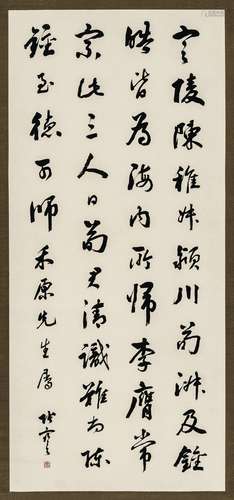 定陵陳稚叔潁川荀淑及鍾
皓皆為海内所歸李膺常
宗此三人曰荀君清識難尚陳
鍾至德可師 禾原先生屬